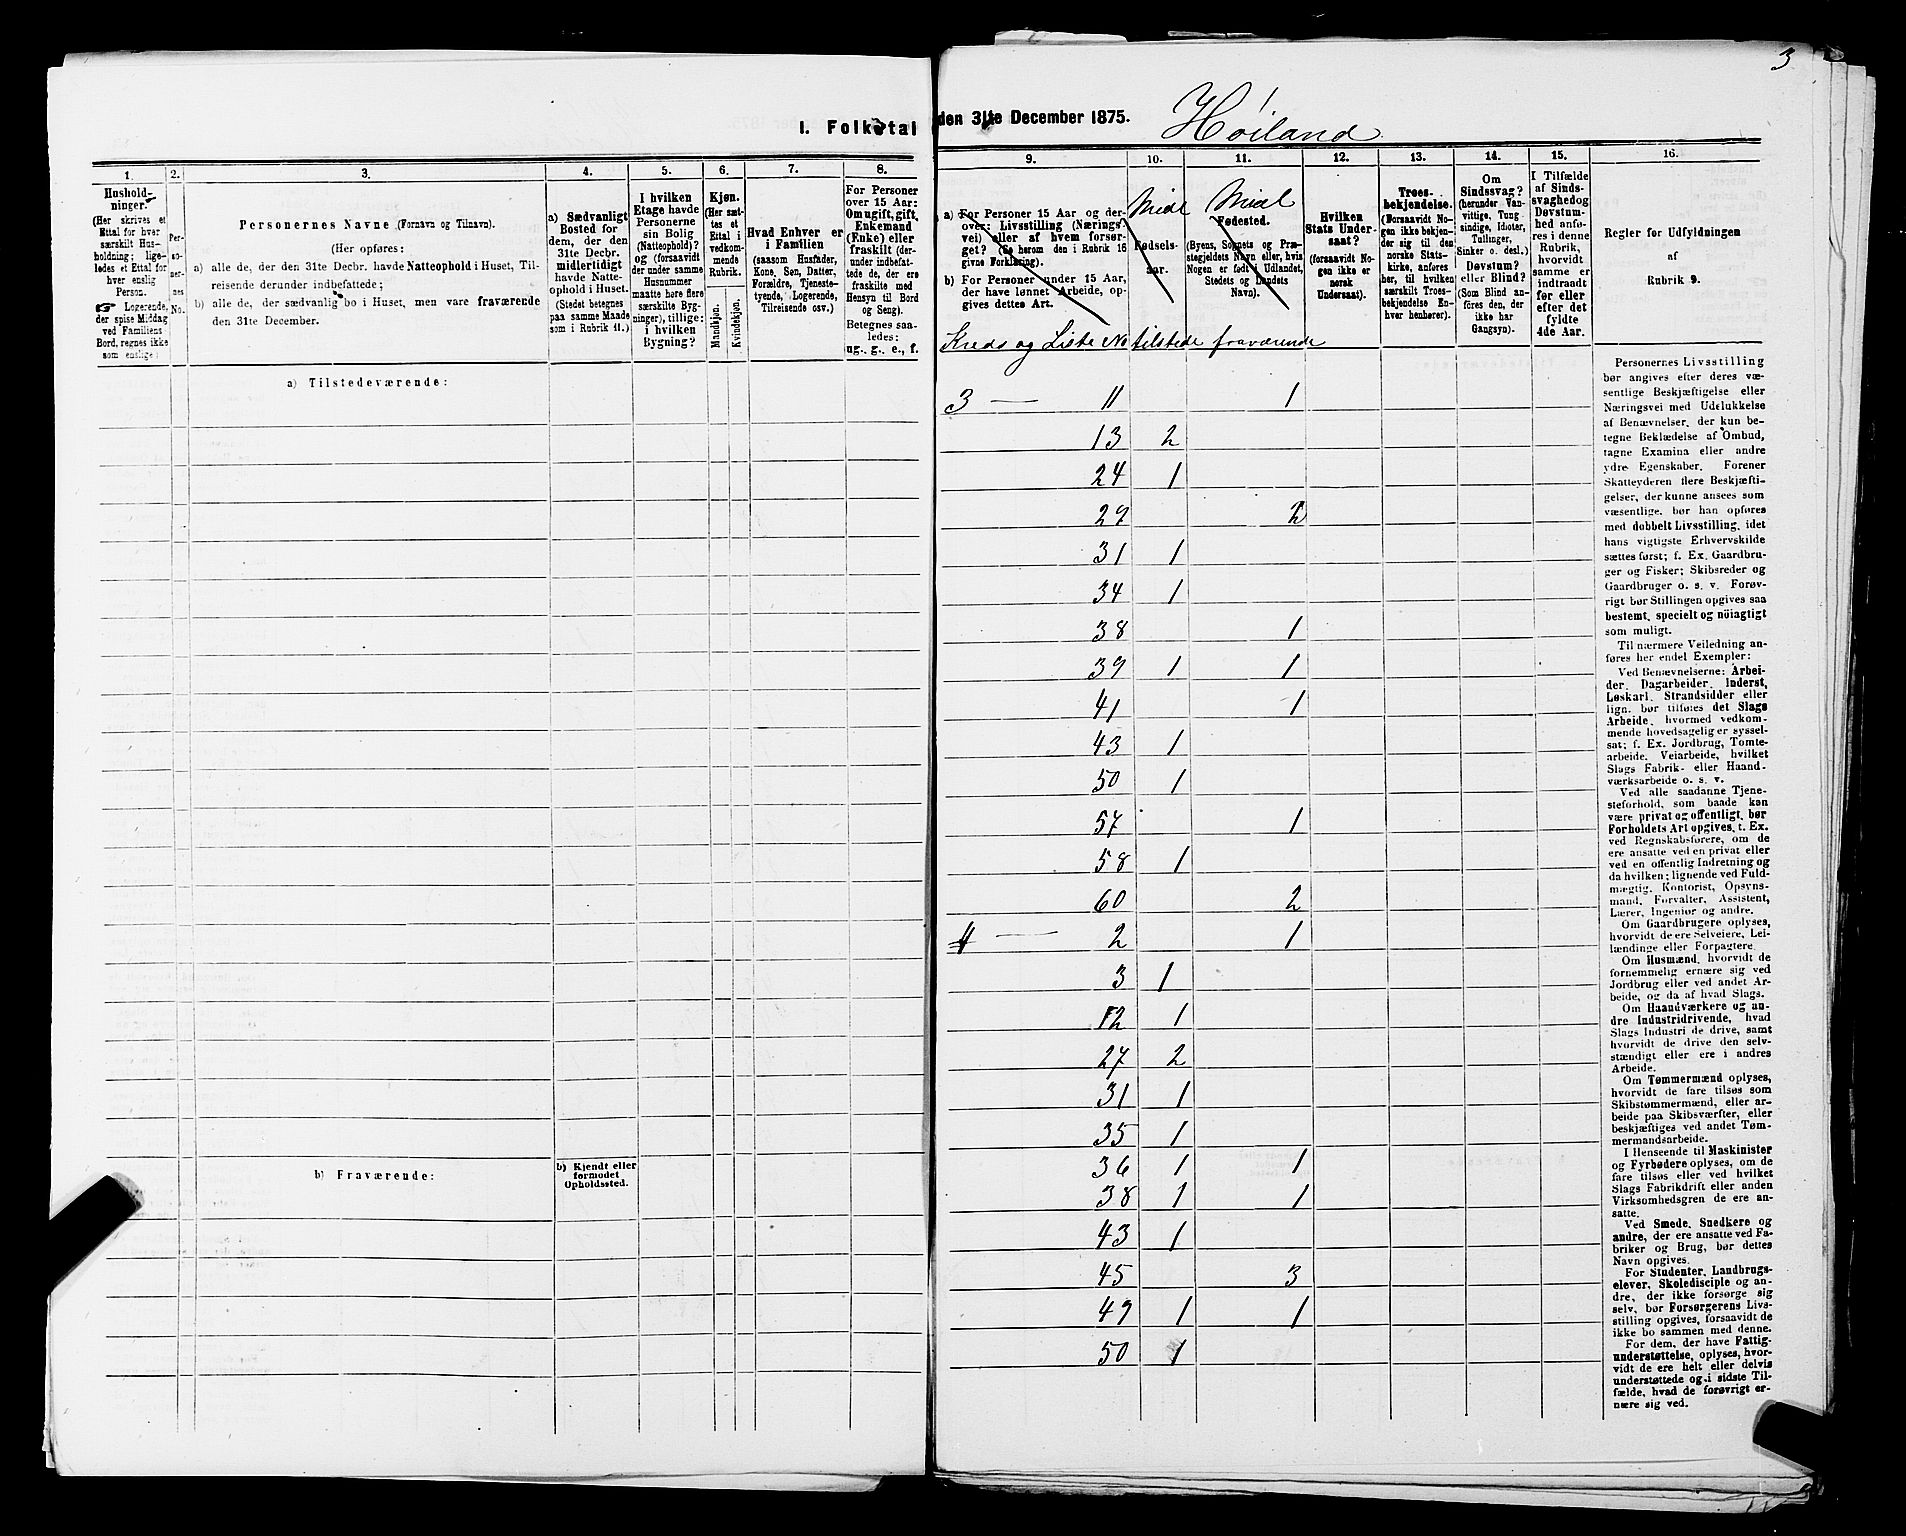 3
I. Folketal den 31te December 1875. Høiland
1.
Hushold-
ninger.
(Her skrives et
Ettal for hver
særskilt Hus-
holdning; lige-
ledes et Ettal for
hver enslig
Person.
☞ Logerende,
der spise Middag
ved Familiens
Bord, regnes ikke
som enslige.)
2.
Per-
so-
ner-
nes
No.
3.
Personernes Navne (Fornavn og Tilnavn).
(Her opføres:
a) alle de, der den 31te Decbr. havde Natteophold i Huset, Til-
reisende derunder indbefattede;
b) alle de, der sædvanlig bo i Huset, men vare fraværende
den 31te December.
4.
a) Sædvanligt
Bosted for
dem, der den
31te Decbr.
havde Natte-
ophold i Huset.
midlertidigt
(Stedet betegnes
paa samme Maade
som i Rubrik 11.)
5.
I hvilken
Etage havde
Personerne
sin Bolig
(Natteophold)?
og (forsaavidt
der under samme
Husnummer
maatte høre flere
særskilte Byg-
ninger), tillige:
i hvilken
Bygning?
6.
Kjøn.
(Her sæt-
tes et
Ettal i
vedkom-
mende
Rubrik.
Mandkjøn.
Kvindekjøn.
7.
Hvad Enhver er
i Familien
(saasom Husfader,
Kone, Søn, Datter,
Forældre, Tjeneste-
tyende, Logerende,
Tilreisende osv.)
8.
For Personer
over 15 Aar:
Om ugift, gift,
Enkemand
(Enke) eller
fraskilt (der-
under indbefat-
tede de, der ere
fraskilte med
Hensyn til Bord
og Seng).
Betegnes saa-
ledes:
ug., g., e., f.
9.
a) For Personer 15 Aar og der-
over: Livsstilling (Nærings-
vei) eller af hvem forsør-
get? (Se herom den i Rubrik 16
givne Forklaring).
b) For Personer under 15 Aar,
der have lønnet Arbeide, op-
gives dettes Art.
10.
Midl
Fødsels-
aar.
11.
Midl
Fødested.
(Byens, Sognets og Præ-
stegjeldets Navn eller, hvis
Nogen er født i Udlandet,
Stedets og Landets
Navn).
12.
Hvilken
Stats Under-
saat?
(forsaavidt No-
gen ikke er
norsk
Undersaat).
13.
Troes-
bekjendelse.
(Forsaavidt No-
gen ikke bekjen-
der sig til den
norske Stats-
kirke, anføres
her, til hvilken
særskilt Troes-
bekjendelse En-
hver henhører).
14.
Om
Sindssvag?
(herunder Van-
vittige, Tung-
sindige, Idioter,
Tullinger,
Sinker o. desl.).
Døvstum?
eller Blind?
(Som Blind an-
føres den, der
ikke har
Gangsyn).
15.
I Tilfælde
af Sinds-
svaghed og
Døvstum-
hed anfø-
res i denne
Rubrik,
hvorvidt
samme er
indtraadt
før eller
efter det
fyldte
4de Aar.
16.
Regler for Udfyldningen
af
Rubrik 9.
Kreds og Liste No tilstede fraværende
a) Tilstedeværende:
3 — 11 1
13 2
24 1
29 2
31 1
34 1
38 1
39 1 1
41 1
43 1
50 1
57 1
58 1
60 2
4 — 2 1
3 1
12 1
27 2
31 1
35 1
b) Fraværende:
b) Kjendt eller
formodet
Opholdssted.
36 1 1
38 1 1
43 1
45 3
49 1 1
50 1
Personernes Livsstilling
bør angives efter deres væ-
sentlige Beskjæftigelse eller
Næringsvei med Udelukkelse
af Benævnelser, der kun be-
tegne Beklædelse af Ombud,
tagne Examina eller andre
ydre Egenskaber. Forener
Skatteyderen flere Beskjæfti-
gelser, der kunne ansees som
væsentlige, bør han opføres
med dobbelt Livsstilling, idet
hans vigtigste Erhvervskilde
sættes først; f. Ex. Gaardbru-
ger og Fisker; Skibsreder og
Gaardbruger o. s. v. Forøv-
rigt bør Stillingen opgives saa
bestemt, specielt og nöiagtigt
som muligt.
Til nærmere Veiledning an-
føres her endel Exempler:
Ved Benævnelserne: Arbei-
der, Dagarbeider, Inderst,
Løskarl, Strandsidder eller
lign. bør tilføres det Slags
Arbeide, hvormed vedkom-
mende hovedsagelig er syssel-
sat; f. Ex. Jordbrug, Tomte-
arbeide, Veiarbeide, hvilket
Slags Fabrik- eller Haand-
værksarbeide o. s. v.
Ved alle saadanne Tjene-
steforhold, som baade kan
være privat og offentligt, bør
Forholdets Art opgives, t. Ex.
ved Regnskabsførere, om de
ere ansatte ved en privat eller
ved en offentlig Indretning og
da hvilken; lignende ved Fuld-
mægtig, Kontorist, Opsyns-
mand, Forvalter, Assistent,
Lærer, Ingeniør og andre.
Om Gaardbrugere oplyses,
hvorvidt de ere Selveiere, Lei-
lændinge eller Forpagtere.
Om Husmænd, hvorvidt de
fornemmelig ernære sig ved
Jordbrug eller ved andet Ar-
beide, og da af hvad Slags.
Om Haandværkere og an-
dre Industridrivende, hvad
Slags Industri de drive, samt
hvorvidt de drive den selv-
stændigt eller ere i andres
Arbeide.
Om Tømmermænd oplyses,
hvorvidt de fare tilsøs som
Skibstømmermænd, eller ar-
beide paa Skibsværfter, eller
beskjæftiges ved andet Tøm-
mermandsarbeide.
I Henseende til Maskinister
og Fyrbødere oplyses, om de
fare tilsøs eller ved hvilket
Slags Fabrikdrift eller anden
Virksomhedsgren de ere an-
satte.
Ved Smede, Snedkere og
andre, der ere ansatte ved Fa-
briker og Brug, bør dettes
Navn opgives.
For Studenter, Landbrugs-
elever, Skoledisciple og an-
dre, der ikke forsørge sig
selv, bør Forsørgerens Livs-
stilling opgives, forsaavidt de
ikke bo sammen med denne.
For dem, der have Fattig-
understøttelse, oplyses, hvor-
vidt de ere helt eller delvis
understøttede og i sidste Til-
fælde, hvad de forøvrigt er-
nære sig ved.